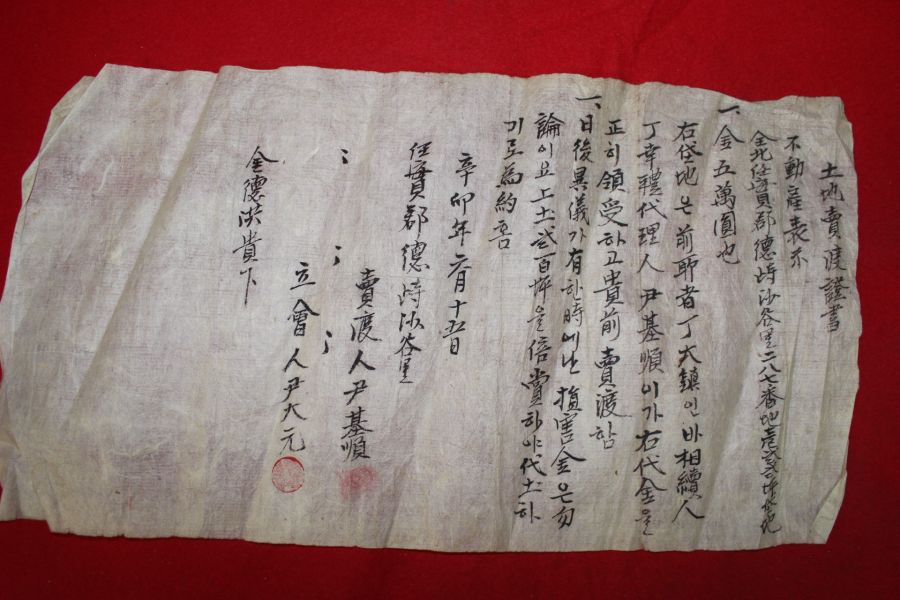 土地賣渡證書
不動産表示
全北任實郡德峙沙谷里二八七番地壱弐 垈地
一、金五萬圓也
右垈地은前耶者丁大鎮인바相續人
丁幸禮代理人尹基順이가右代金을
正히領受하고貴前賣渡함
一、日後異儀가有한時에난損害金은勿
論이요上土弐百坪을倍賞하야代土하
기로爲約홈
辛卯年 月十五日
任實郡德峙沙谷里
〃 〃 賣渡人尹基順
〃 立會人尹大元
金德洪貴下